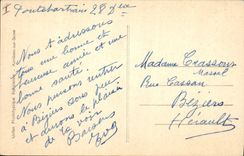 Pontchartrain 28 déc
Nous t'adressons
tous une bonne et
heureuse année et une
bonne santé.
Nous pensons rentrer
à Béziers sous peu
et aurons le plaisir
de te voir
Baisers
Madame Crassous
Rue Cassan
Béziers
Hérault